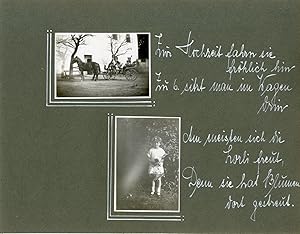 Zur Hochzeit fahren sie
fröhlich hin
Zu 6. sitzt man im Wagen
drin
Am meisten sich die
Lorli freut,
Denn sie hat Blumen
dort gestreut.